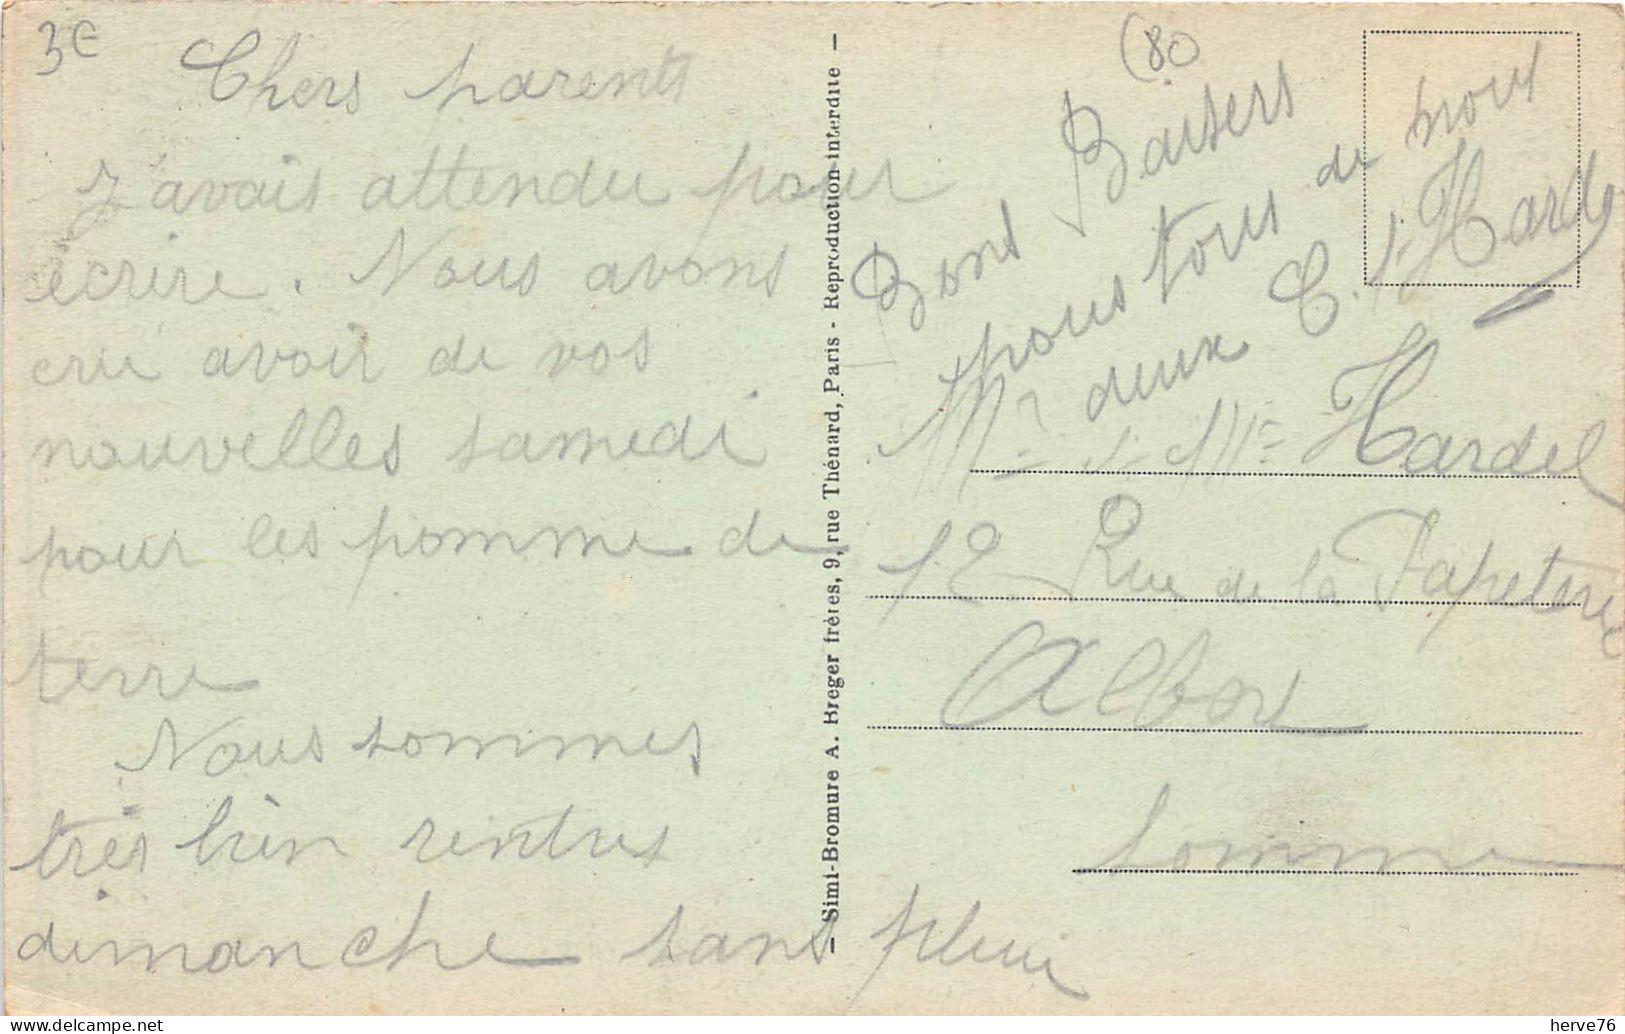 3€
Chers parents
J'avais attendu pour
écrire. Nous avons
cru avoir de vos
nouvelles samedi
pour les pomme de
terre
Nous sommes
très bien rentrés
dimanche sans pluie
— Simi-Bromure A. Breger frères, 9, rue Thénard, Paris - Reproduction interdite —
(80
Bons Baisers
pour tous de nous
deux C. et Hardel
Mr et Mme Hardel
12 Rue de la Papeterie
Albert
Somme
herve76